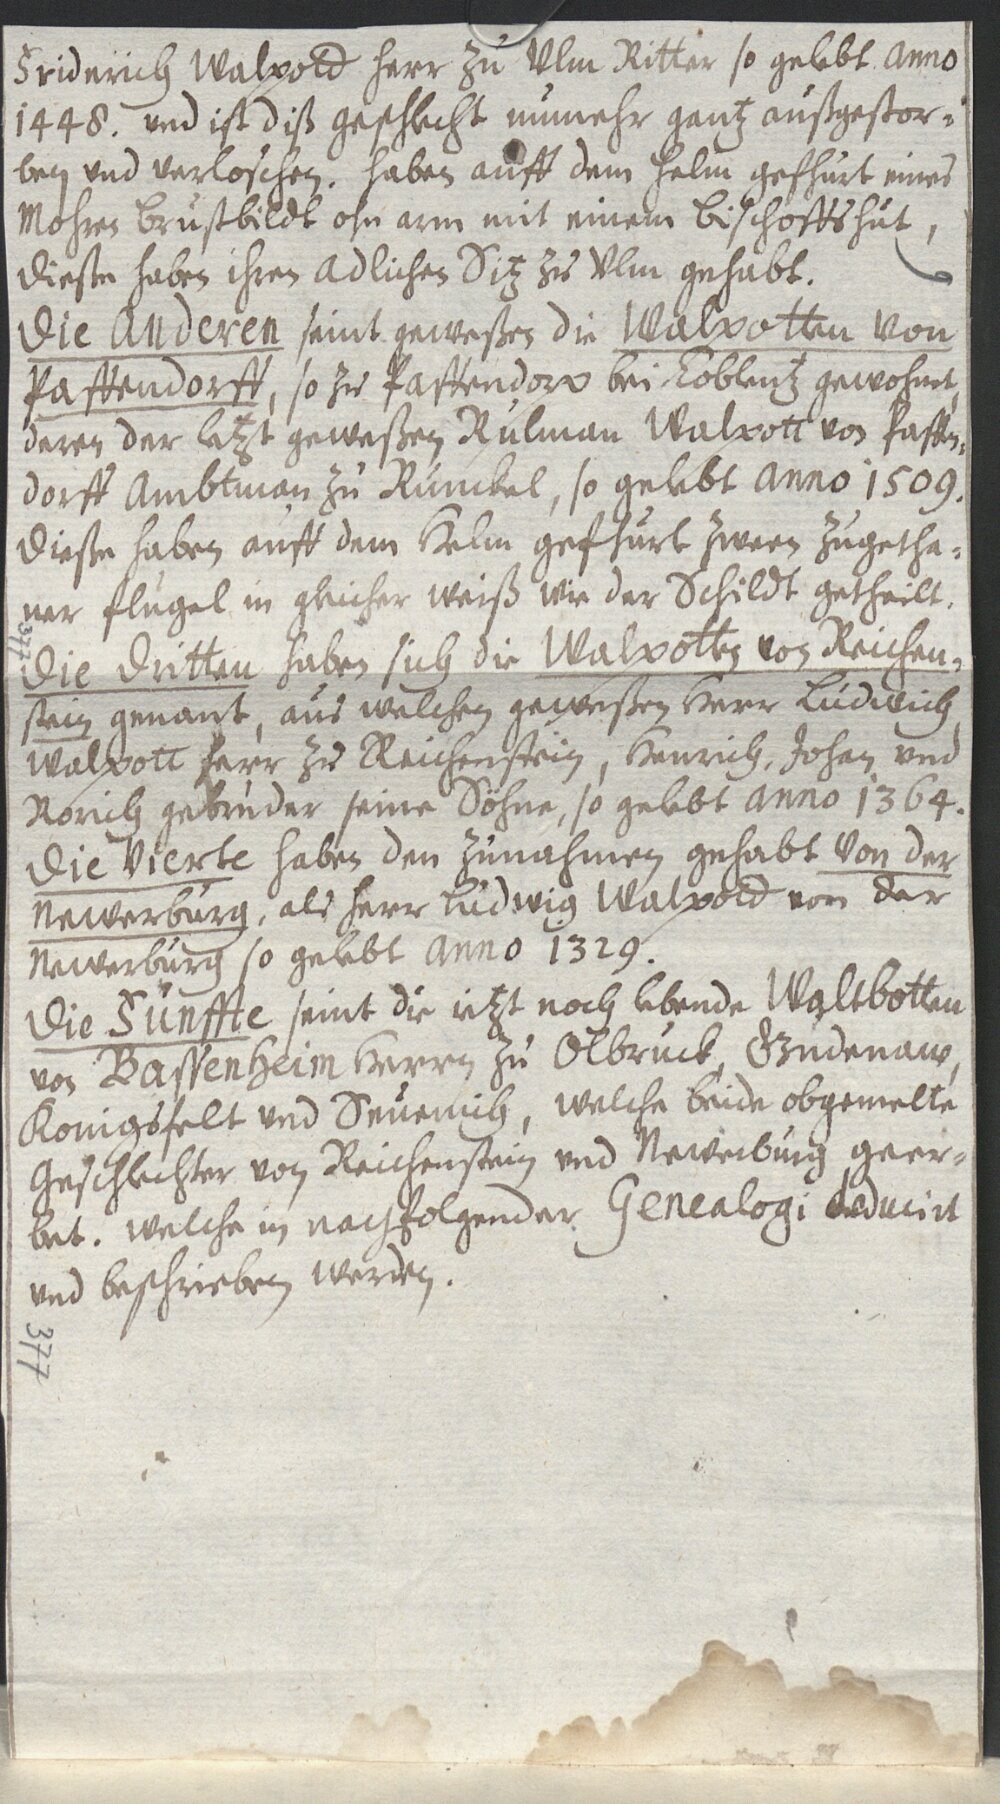 Friderich Walpold herr zu Vlm Ritter so gelebt Anno
1448. vnd ist diß geschlecht nunmehr gantz außgestor-
ben vnd verloschen. haben auff dem helm gefhürt eines
Mohren brustbildt ohn arm mit einem bischoffshut,
Dieße haben ihren Adlichen Sitz zu Vlm gehabt.
Die Anderen seint geweßen die Walpotten von
Paffendorff, so zu Paffendorp bei Coblentz gewohnt,
deren der letzt geweßen Rulman Walpott von Paffen-
dorff Ambtman zu Runckel, so gelebt Anno 1509.
Dieße haben auff dem Helm gefhürt zween zugetha-
ner flugel in gleicher weiß wie der Schildt getheilt.
377
Die Dritten haben sich die Walpotten von Reichen-
stein genant, aus welchen geweßen Herr Ludwich
Walpott herr zu Reichenstein, Henrich, Johan vnd
Rorich gebruder seine Söhne, so gelebt Anno 1364.
Die Vierte haben den zunahmen gehabt von der
Newerburg, als herr Ludwig Walpold von der
Newerburg so gelebt Anno 1329.
Die Fünffte seint die ietzt noch lebende Waltbotten
von Bassenheim Herrn zu Olbruck, Gudenaw,
Konigsfelt vnd Seuenich, welche beide obgemelte
Geschlechter von Reichenstein vnd Newerburg geer-
bet. welche in nachfolgender Genealogi deducirt
vnd beschrieben werden.
377